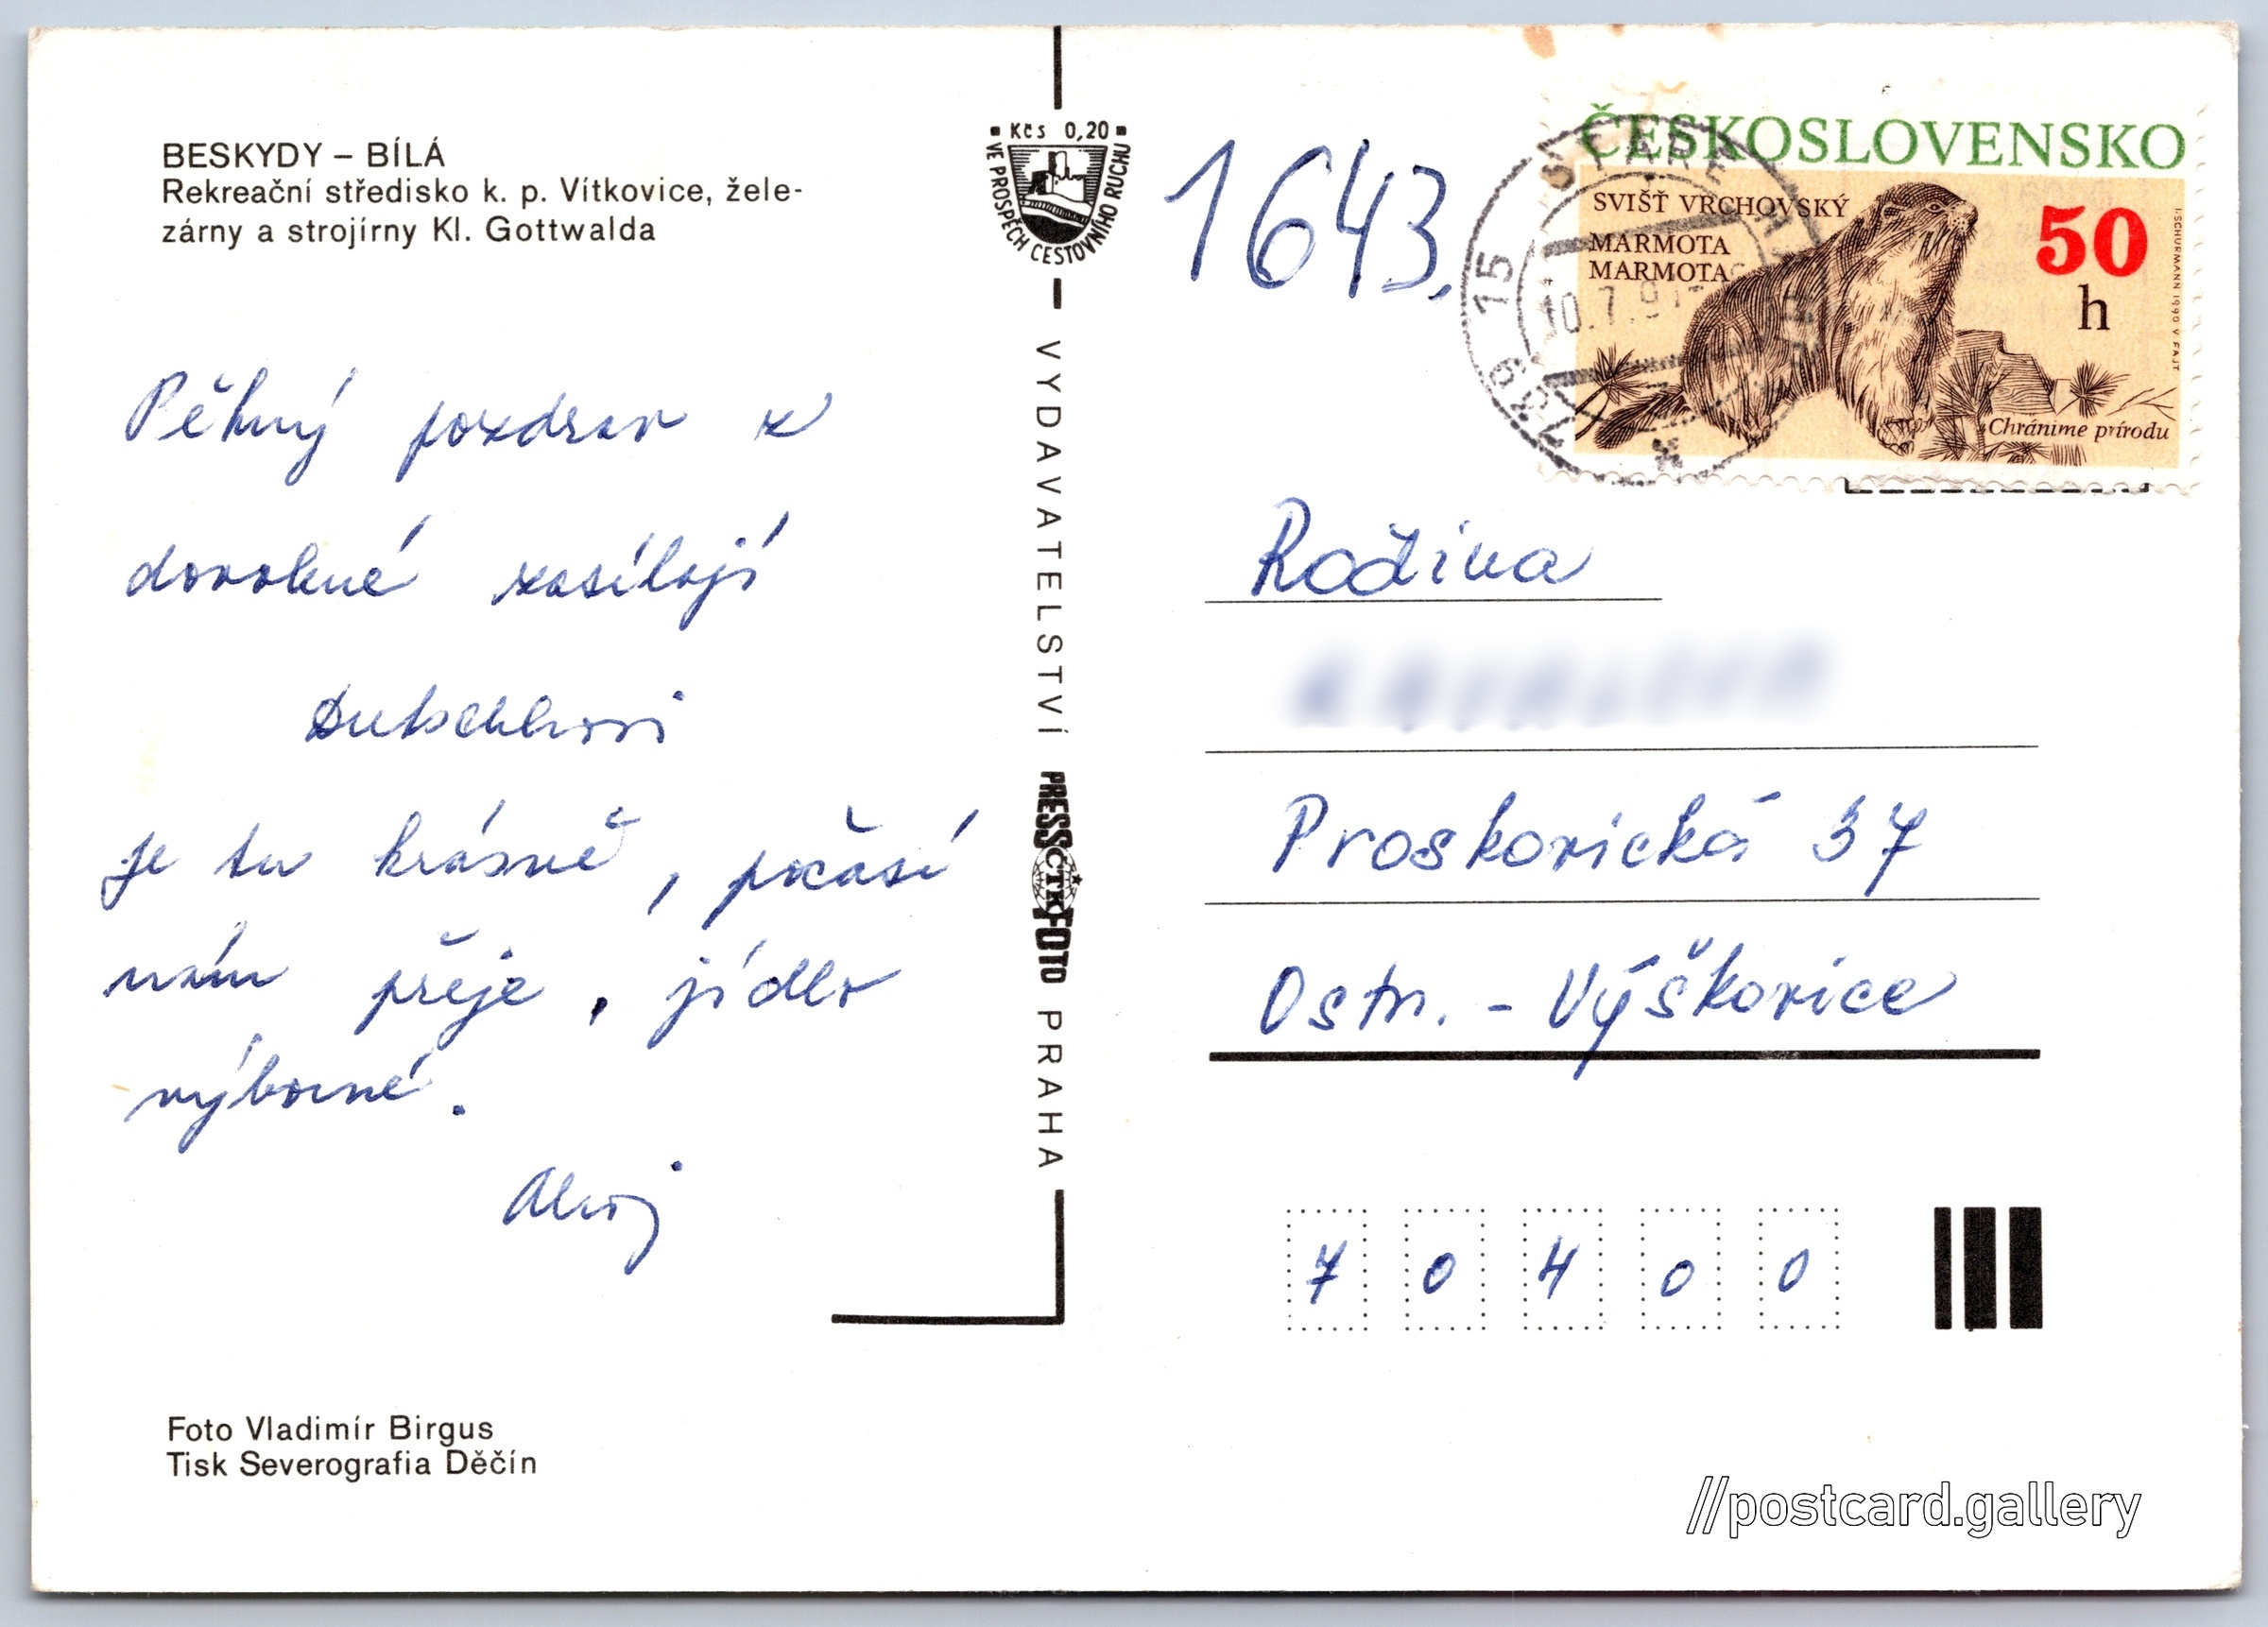 BESKYDY – BÍLÁ
Rekreační středisko k. p. Vítkovice, žele-
zárny a strojírny Kl. Gottwalda
Pěkný pozdrav z
dovolené zasílají
Je tu krásně, počasí
nám přeje, jídlo
výborné.
Ahoj
Foto Vladimír Birgus
Tisk Severografia Děčín
Kčs 0,20
VE PROSPĚCH CESTOVNÍHO RUCHU
VYDAVATELSTVÍ PRESSFOTO PRAHA
ČTK
1643.
ČESKOSLOVENSKO
SVIŠŤ VRCHOVSKÝ
MARMOTA
MARMOTA
50
h
I. SCHURMANN 1990 V. FAJT
Chránime prírodu
739 15
STARÉ
10.7.91
Rodina
Proskovická 37
Ostr. - Výškovice
7 0 4 0 0
//postcard.gallery